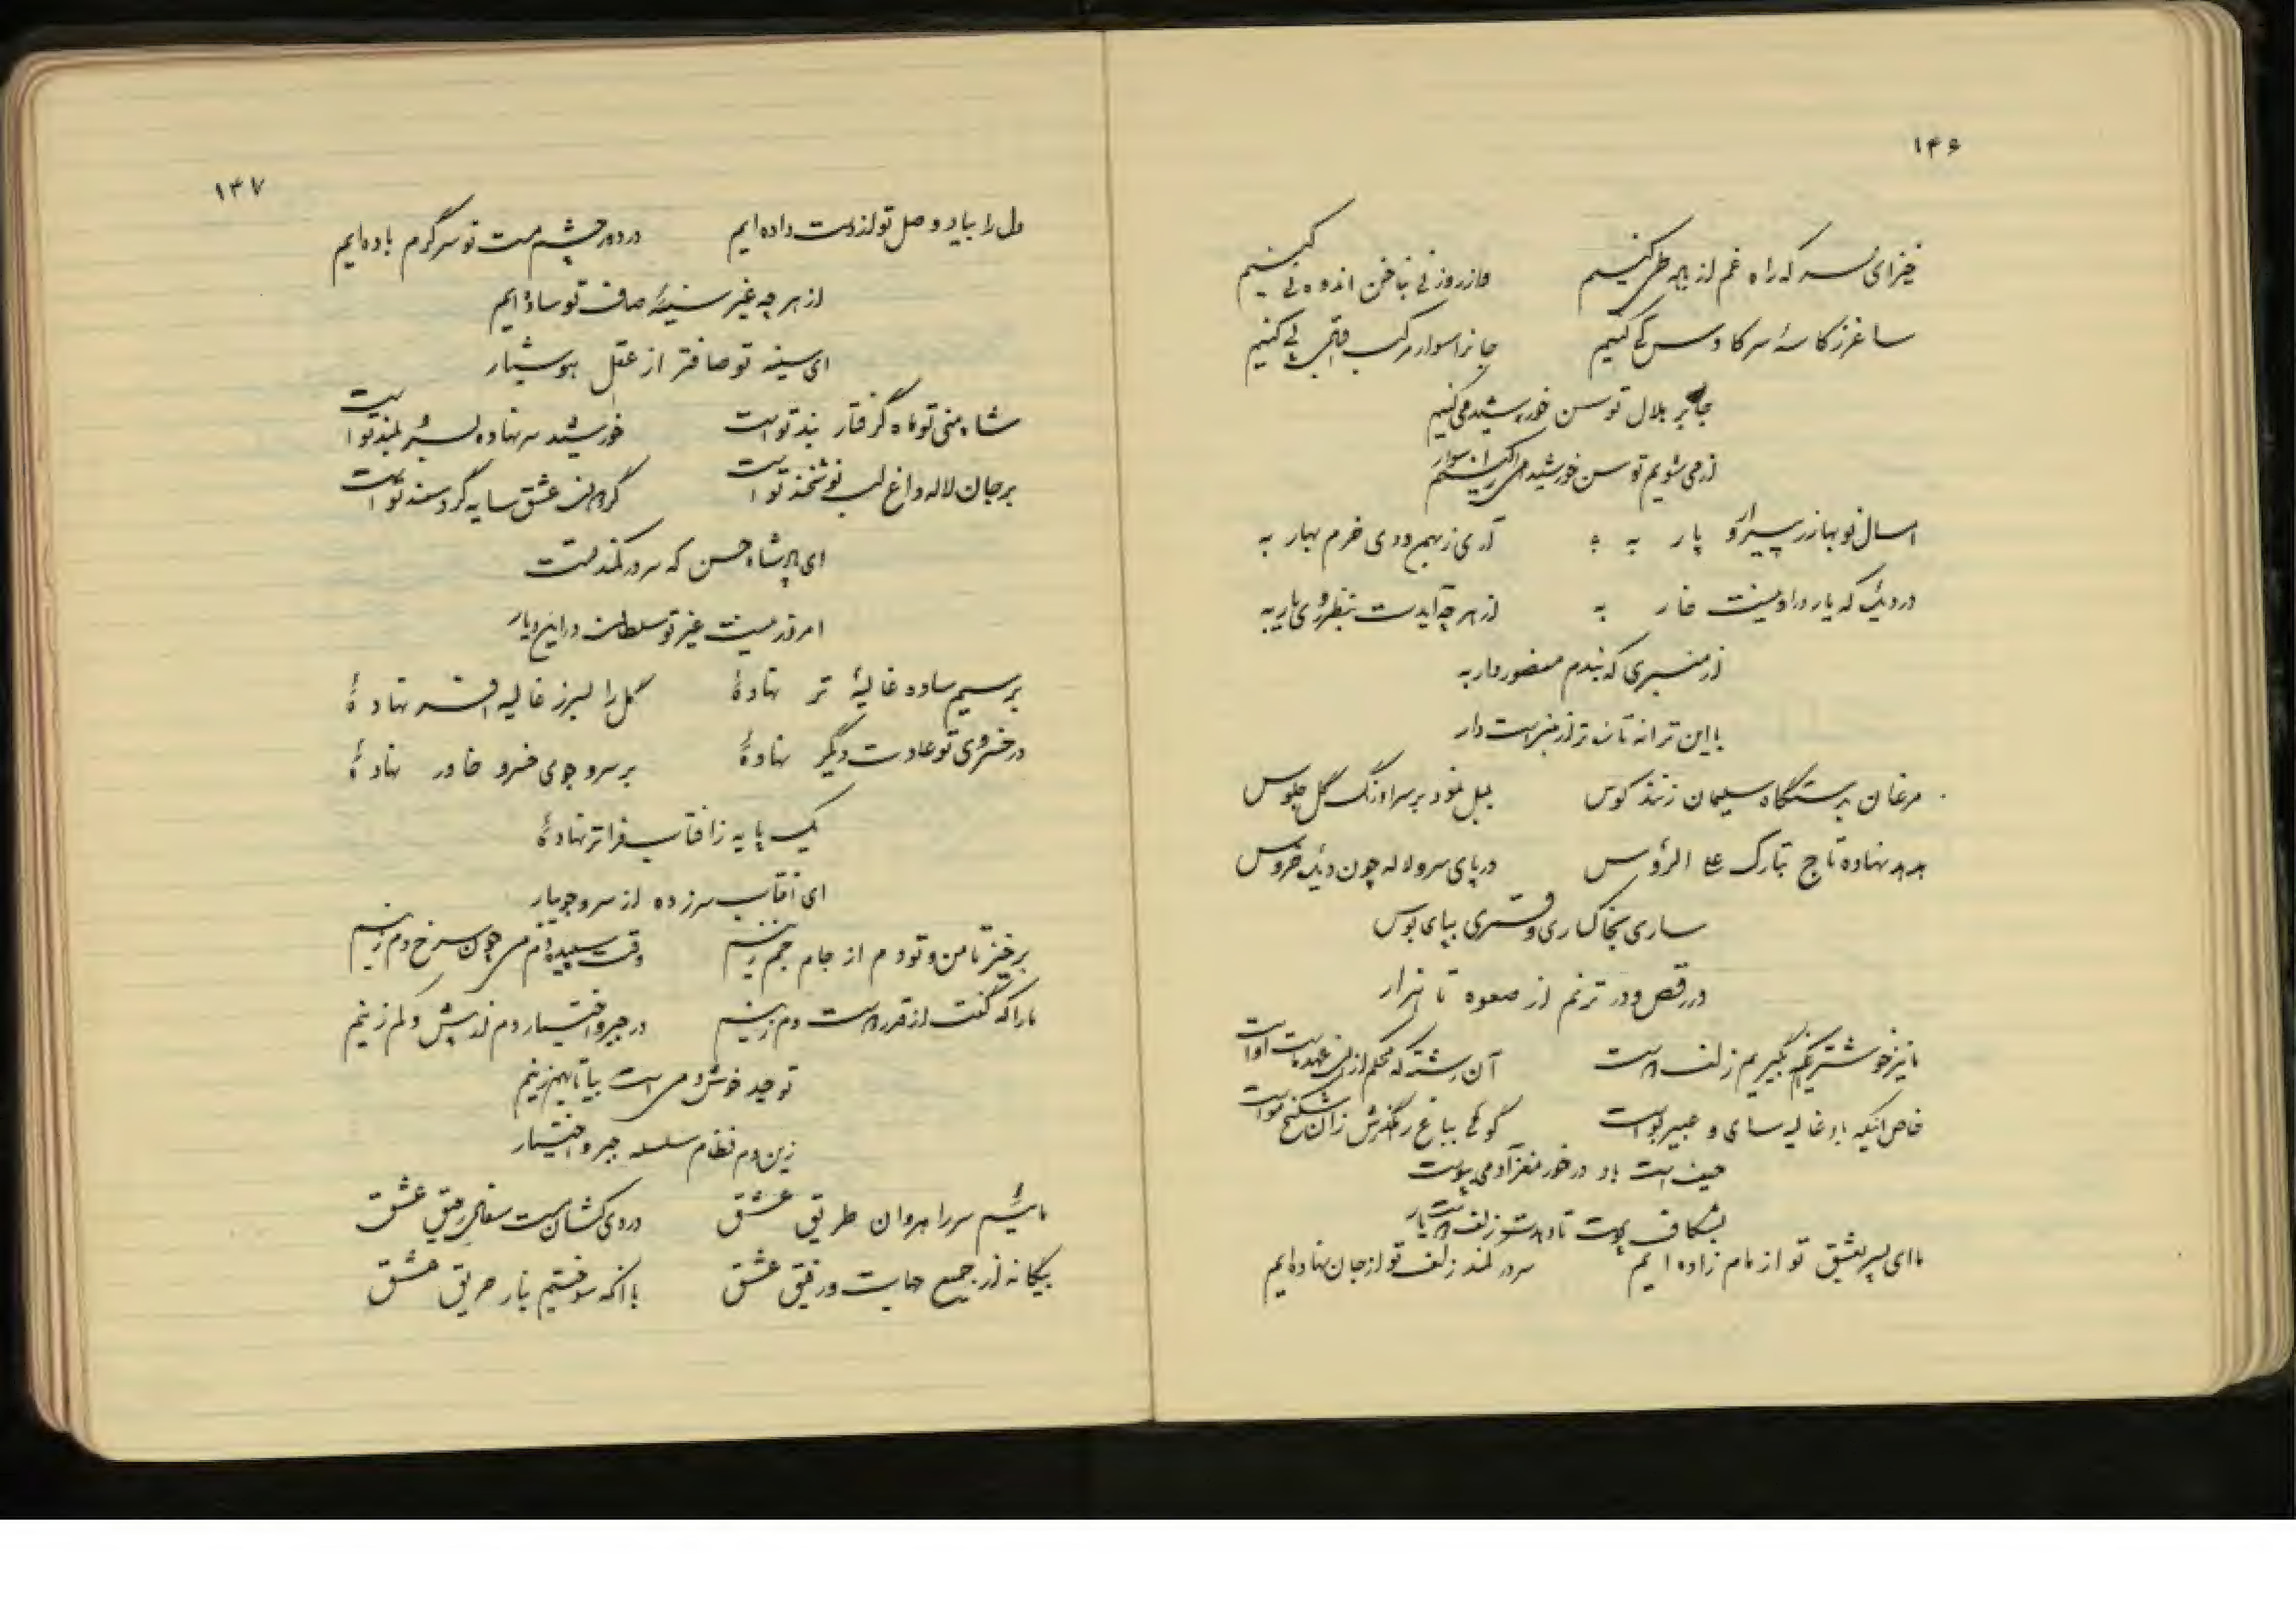 ۱۴۶
خیز ای پسر که راه غم از باده طی کنیم
ساغر ز کاسهٔ سر کاوس کی کنیم جانرا سوار مرکب
جا بر هلال توسن خورشید می کنیم
از می شویم توسن خورشید را سوار
امسال نوبهار ز پیرار و پار به آری ز بهمن و دی خرم بهار به
در دیده که یار در او نیست خار به از هر چه آیدت بنظر روی یار به
از منبری که نبدم منصور دار به
با این ترانه تان تر از منبرست دار
مرغان به دستگاه سلیمان زنند کوس بلبل نمود بر سر اورنگ گل جلوس
هدهد نهاده تاج تبارک علی الرؤس در پای سرو لاله چون دیده خروس
ساری بخاکساری و قمری بپای بوس
در رقص و در ترنم از صعوه تا هزار
ما نیز خوشتر آنکه بگیریم زلف دوست آن رشته که محکم از
خاص آنکه باد غالیه سای و عبیر بوست گوئی بباغ رهگذرش زان شکنج موست
حیف است باد در خور مغز آدمی پوست
بشکاف پوست تا دهدت زلف دوست بار
ما ای پسر بعشق تو از مام زاده ایم سر در کمند زلف تو از جان نهاده ایم
۱۴۷
دل را بیاد وصل تو از دست داده ایم در دور چشم مست تو سرگرم باده ایم
از هر چه غیر سینهٔ صاف تو ساده ایم
ای سینه تو صافتر از عقل هوشیار
شاه منی تو ماه گرفتار بند تو است خورشید سر نهاده بسرو بلند تو است
بر جان لاله داغ لب نوشخند تو است گردن عشق سایه گرد سمند تو است
ای پادشاه حسن که سر در کمند تست
امروز نیست غیر تو سلطان در این دیار
بر سیم ساده غالیهٔ تر نهادهٔ گل را بسر ز غالیه افسر نهادهٔ
در خسروی تو عادت دیگر نهادهٔ بر سرو جوی خسرو خاور نهادهٔ
یک پایه ز آفتاب فراتر نهادهٔ
ای آفتاب سر زده از سرو جویبار
برخیز تا من و تو دم از جام جم زنیم وقت سپیده دم می چون سرخ دم زنیم
ما را که گفت از قدر است دم زنیم در جبر و اختیار دم از بیش و کم زنیم
توحید خوش دمی است بیا تا بهم زنیم
زین دم نظام سلسله جبر و اختیار
مائیم سر راهروان طریق عشق دردی کشان مست سفال رحیق عشق
بیگانه از جمیع جهات و رفیق عشق با آنکه سوختیم بنار حریق عشق